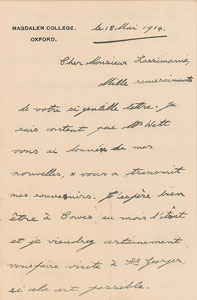 MAGDALEN COLLEGE,
OXFORD.
le 18 Mai 1914.
Cher Monsieur
Mille remerciments
de votre si gentille lettre. Je
suis content que Mr
vous ai donné de mes
nouvelles, & vous a transmit
mes souvenirs. J'espère bien
être à Cowes au mois d'Août
et je viendrai certainement
vous faire visite à St Georges,
si cela est possible.